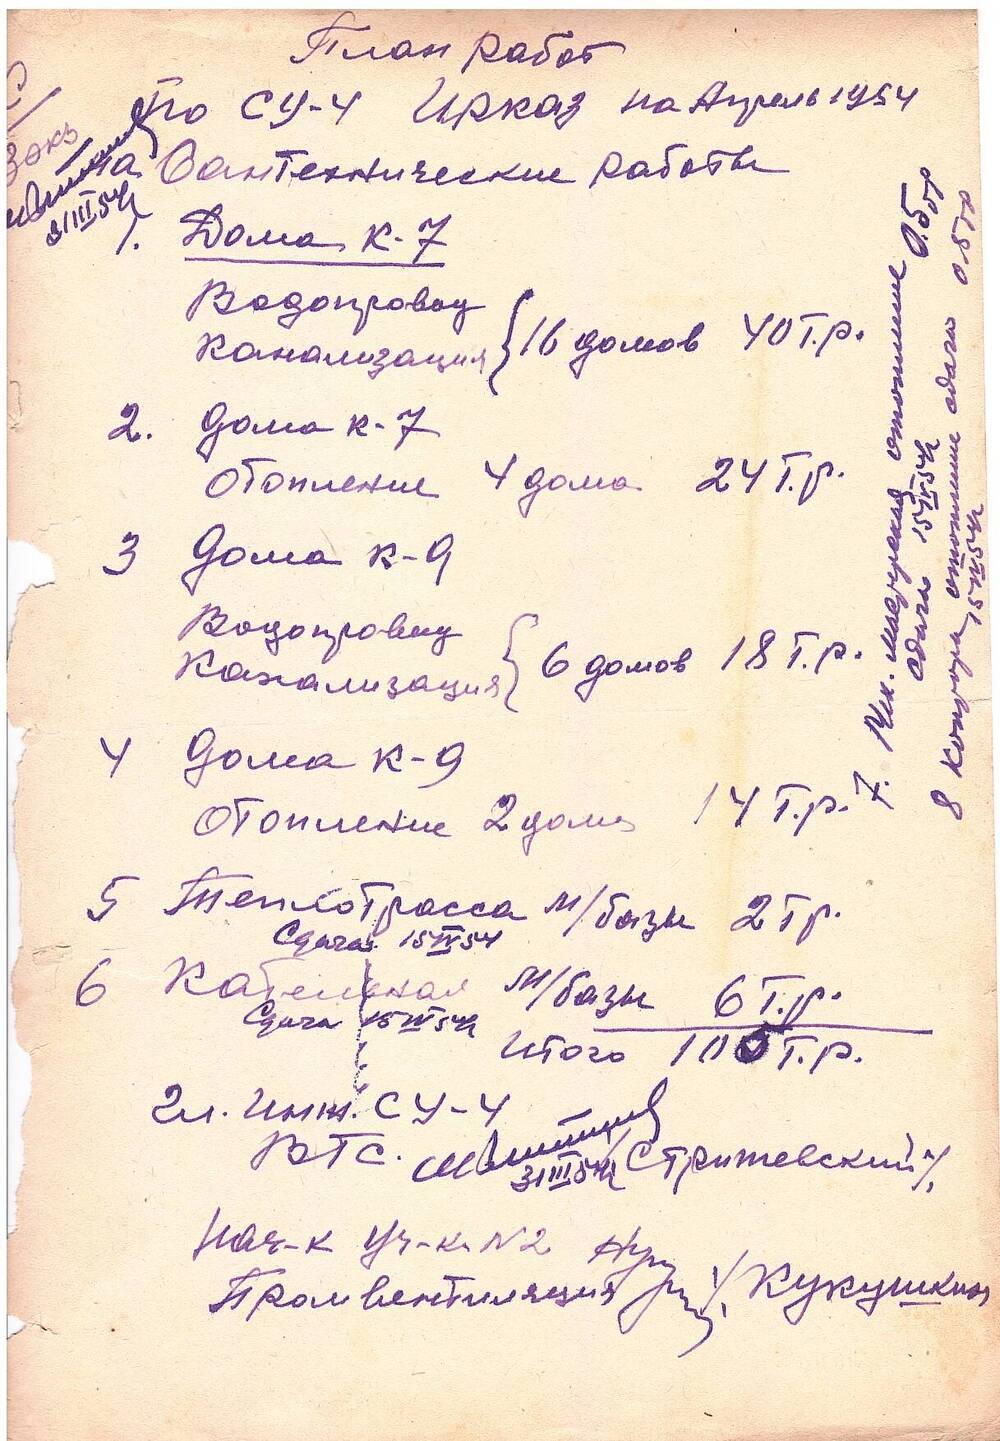 План работ
по СУ-4 на Апрель 1954
на Сантехнические работы
31/III 54
1. Дома к-7
Водопровод
Канализация } 16 домов 40 т.р.
2. Дома к-7
Отопление 4 дома 24 т.р.
3 Дома к-9
Водопровод
Канализация } 6 домов 18 т.р.
4 Дома к-9
Отопление 2 дома 14 т.р.
5 Теплотрасса м/базы 2 тр.
Сдача 15 IV 54
6 Кательная м/базы 6 т.р.
Сдача 15 IV 54
Итого 105 т.р.
7. Мех. Мастерская отопление 0.5 тр
сдача 15 IV 54
8 контора отопление сдача 0.5 тр
15 IV 54
Гл. Инж. СУ-4
ВТС. 31 III 54 /Стрижевский/
Нач-к Уч-ка N2
Промвентиляция /Кукушкин